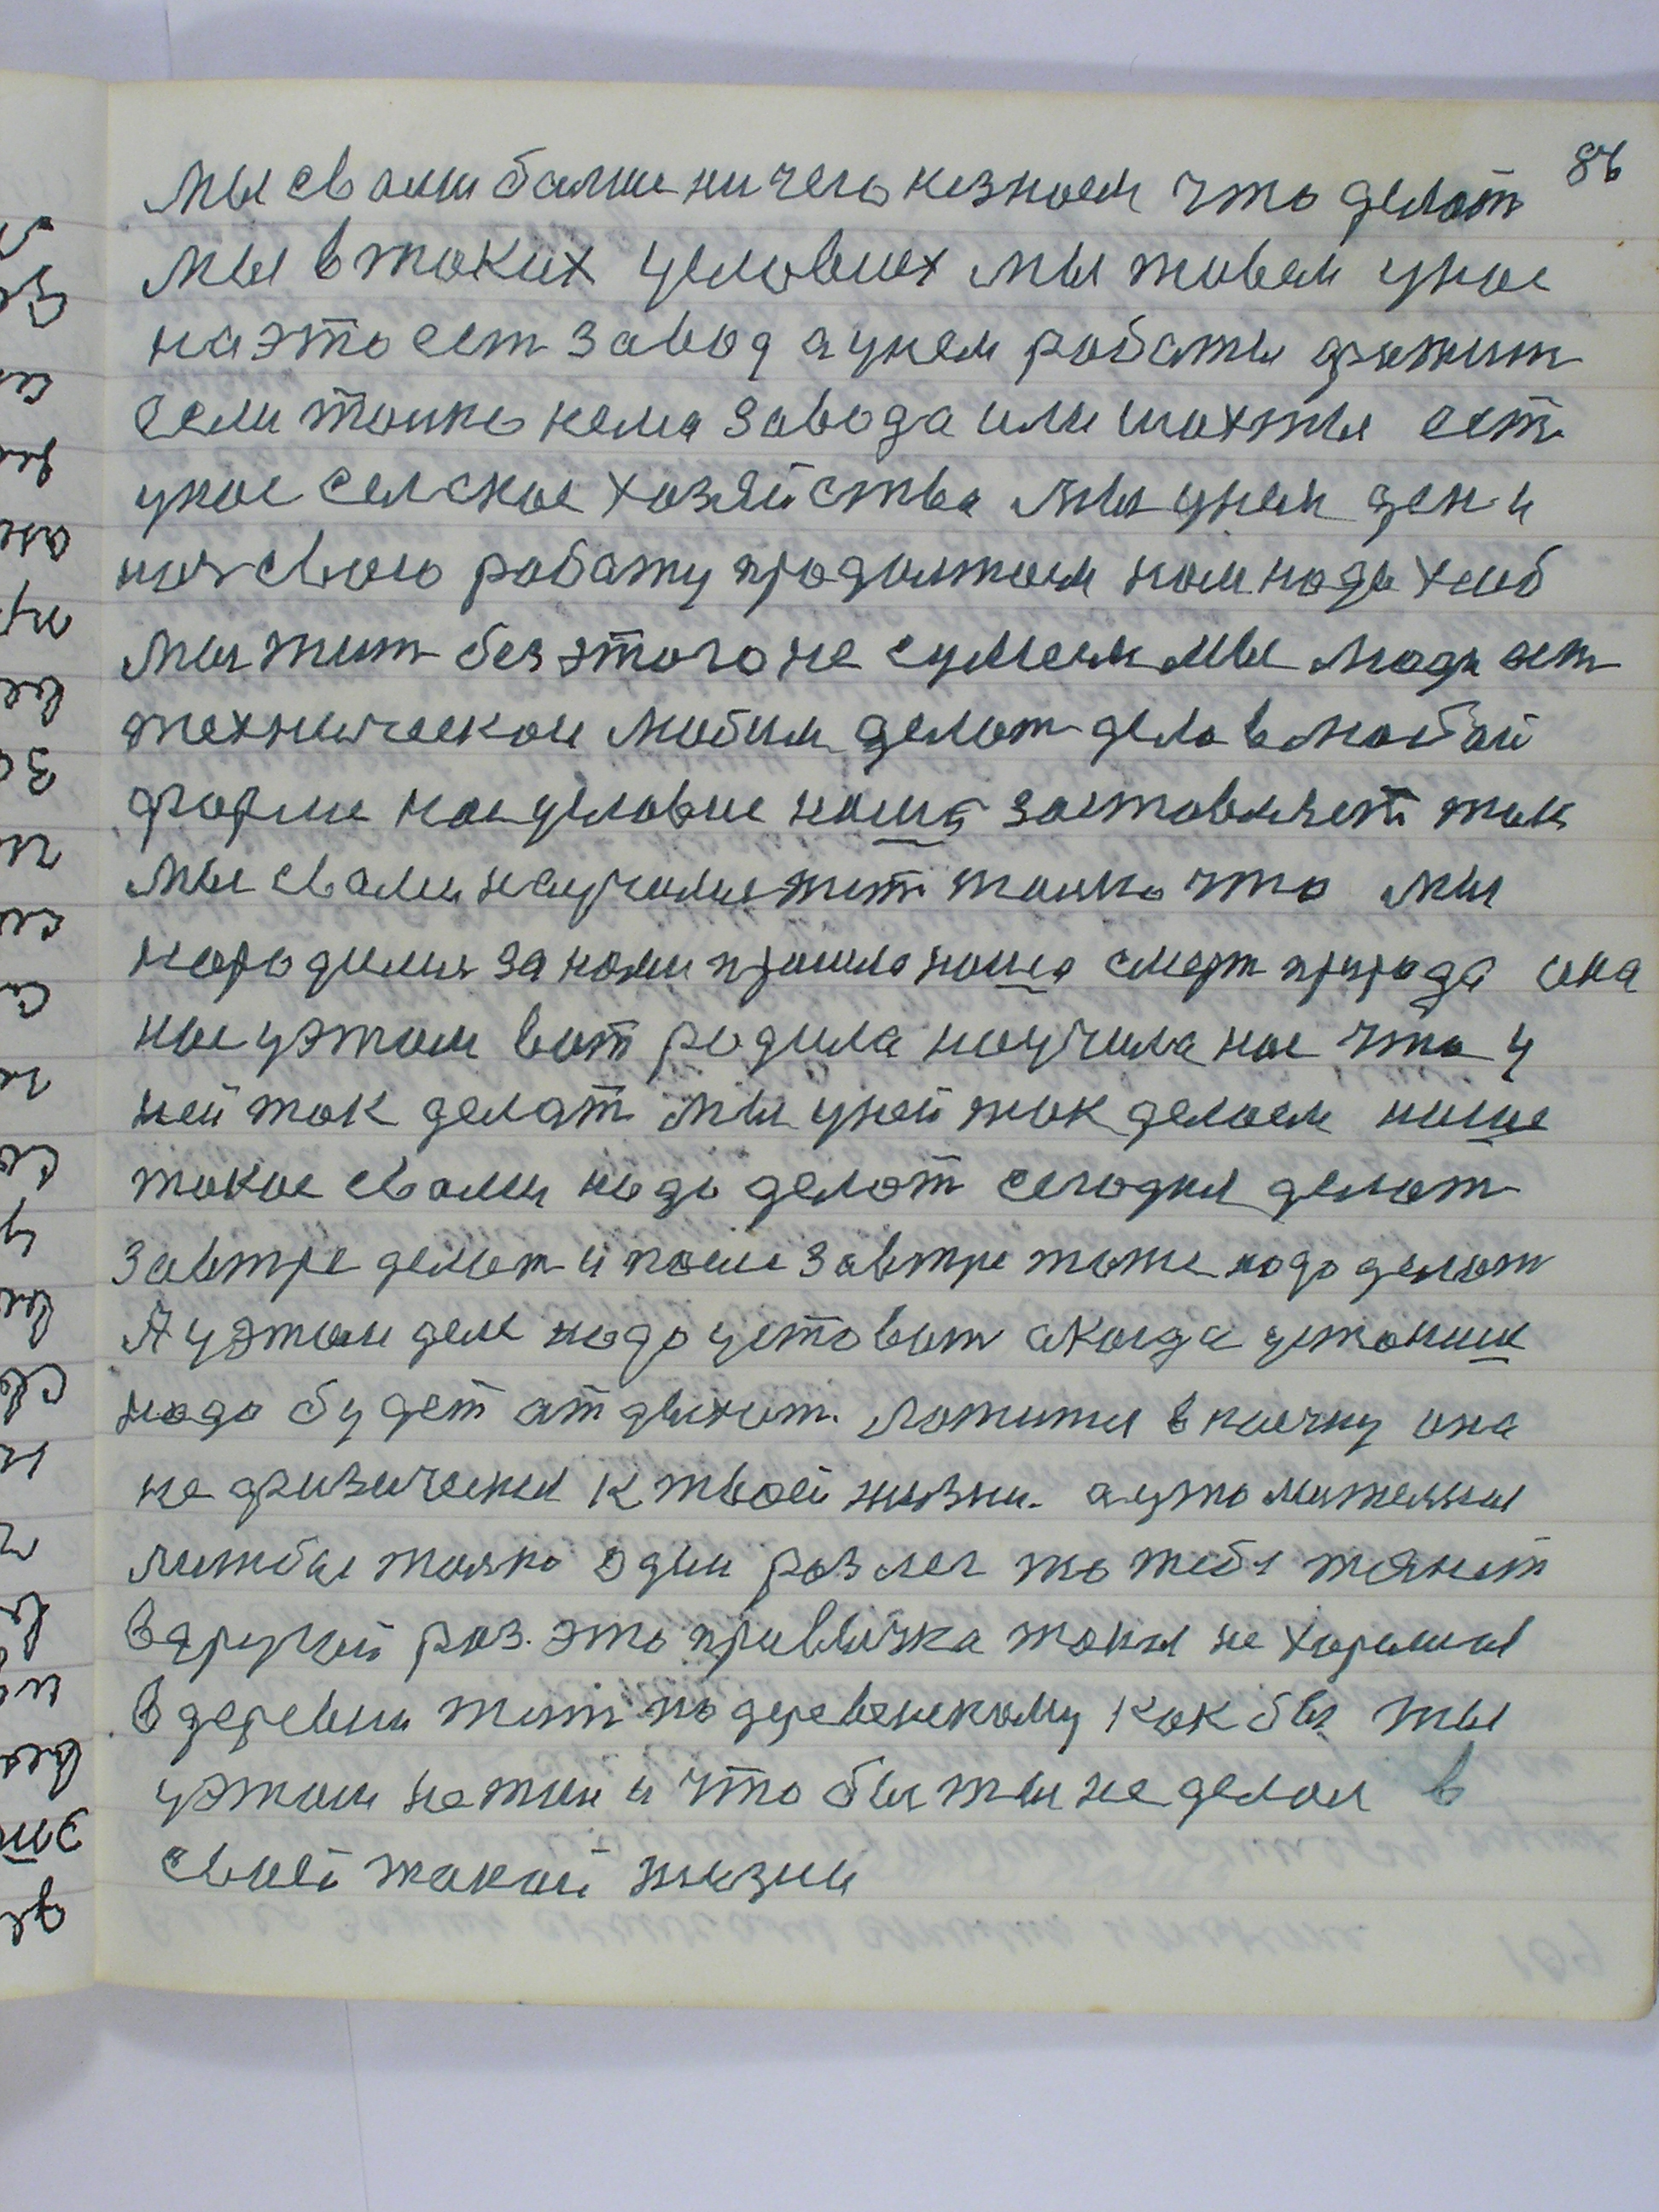 86
мы свами балше ничего незнаем что делат
мы втаких условиех мы живем унас
наэто ест завод аунем работы фатит
если толко нема завода или шахты ест
унас селское хозяйства мы унем ден и
ноч свою работу продолжаем нам надо хлеб
мы жит без этого не сумеем мы люди ест
технической любим делат дело влюбой
форме нас условие наша заставляет так
мы свами научилис жит толко что мы
народилис за нами пришла наша смерт природа она
нас уэтом вот родила научила нас что у
ней так делат мы уней так делаем наше
такое свами надо делат сегодня делат
завтре делат и после завтре тоже надо делат
А уэтом деле надо устават акогда устанеш
надо будет атдыхат. ложится вкоечку она
не физическая к твоей жизни. аумо
толко один раз лег то тебя тянет
вдругой раз. это привычка такая не хорошая
вдеревни жит по деревенскому как бы ты
уэтом не жил и что бы ты не делал в
своей такой жизни